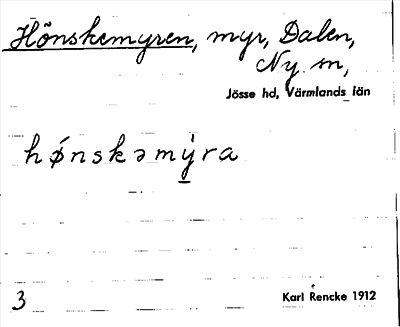 Hönskemyren, myr, Dalen,
Ny sn,
Jösse hd, Värmlands län
hǿnskəmỳ̠ra
3
Karl Rencke 1912